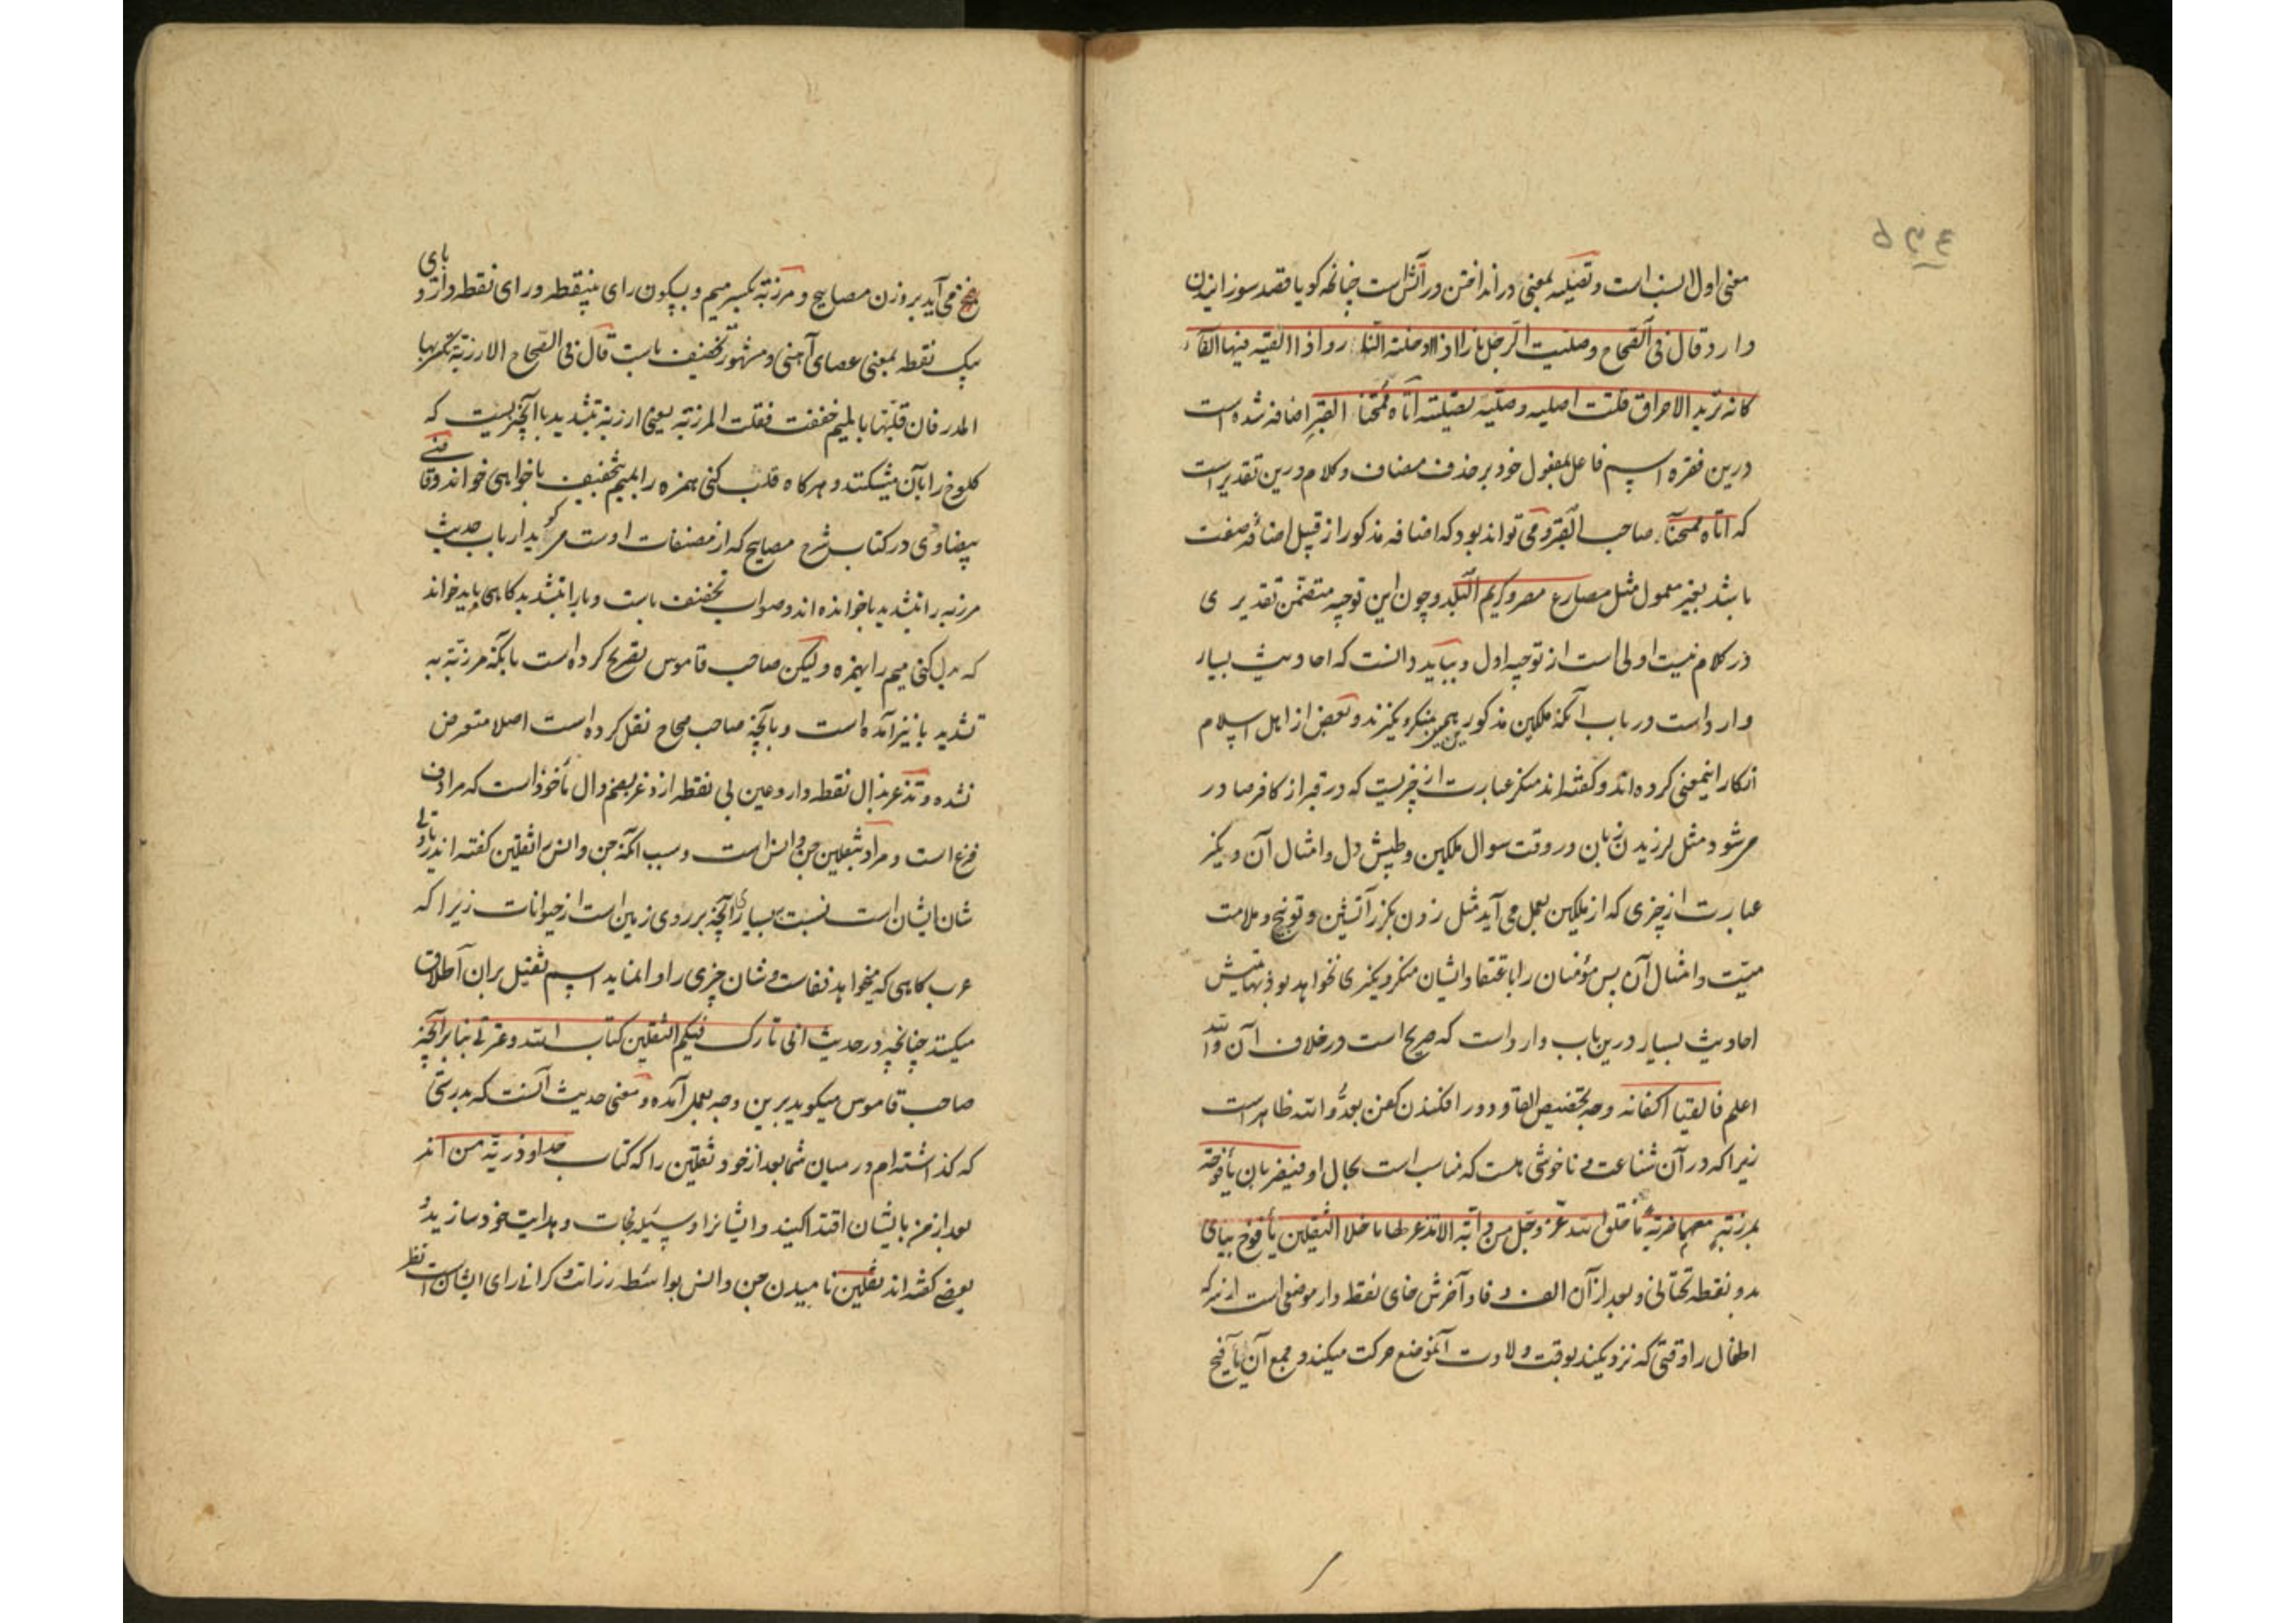 معنی اول انسب است و تصلیه بمعنی در انداختن در آتش است چنانچه کویا قصد سوزانیدن
دارد و قال فی الصحاح و صلیت الرجل نارا اذا ادخلته النار و اذا القیته فیها القاء
کانه ترید الاحراق قلت اصلیه و صلیته تصلیته اتاه ممتحنا القبر اضافه شده است
درین فقره اسم فاعل بمفعول خود بر حذف مضاف و کلام درین تقدیر است
که اتاه ممتحنا صاحب القبر و می تواند بود که اضافه مذکور از قبیل اضافه صفت
باشد بغیر معمول مثل مصارع مصر و کریم البلد و چون این توجیه متضمن تقدیری
در کلام نیست اولی است از توجیه اول و بباید دانست که احادیث بسیار
وارد است در باب آنکه ملکین مذکورین بمنکر و نکیرند و بعضی از اهل اسلام
انکار اینمعنی کرده اند و کفته اند منکر عبارت از چیزیست که در قبر از کافر صادر
می شود مثل لرزیدن زبان در وقت سوال ملکین و طپش دل و امثال آن و نکیر
عبارت از چیزی که از ملکین بعمل می آید مثل زدن بکرز آتشین و توبیخ و ملامت
میت و امثال آن پس مؤمنان را باعتقاد ایشان منکر و نکیری نخواهد بود نهایتش
احادیث بسیار درین باب وارد است که صریح است در خلاف آن و الله
اعلم فالقیا اکفانه وجه تخصیص القا و دور افکندن کفن بعدو الله ظاهر است
زیرا که در آن شناعت و ناخوشی هست که مناسب است بحال او فیضربان یأفوخه
بمرزبة معهما ضربة ما خلق الله عز و جل من دابة الا تذعر لها ما خلا الثقلین یأفوخ بیای
بدو نقطه تحتانی و بعد از آن الف و فا و آخرش خای نقطه دار موضعی است از سر که
اطفال را وقتی که نزدیکند بوقت ولادت آنموضع حرکت میکند و جمع آن یآفیخ
می آید بر وزن مصابیح و مرزبه بکسر میم و بسکون رای بینقطه و رای نقطه دار و بای
یک نقطه بمعنی عصای آهنی و مشهور تخفیف با است قال فی الصحاح الارزبة التی یکسر بها
المدر فان قلتها بالمیم خففت فقلت المرزبة یعنی ارزبه بتشدید با آنچیزیست که
کلوخ را بآن میشکنند و هر کاه قلب کنی همزه را بمیم بتخفیف با خواهی خواند و قاضی
بیضاوی در کتاب شرح مصابیح که از مصنفات اوست می کوید ارباب حدیث
مرزبه را بتشدید با خوانده اند و صواب تخفیف با است و با را بتشدید کاهی باید خواند
که بدل کنی میم را بهمزه و لیکن صاحب قاموس تصریح کرده است بآنکه مرزبة به
تشدید با نیز آمده است و بآنچه صاحب صحاح نقل کرده است اصلا متعرض
نشده و تذعر بذال نقطه دار و عین بی نقطه از ذعر بضم ذال مأخوذ است که مرادف
فزع است و مراد بثقلین جن و انس است و سبب آنکه جن و انس را ثقلین کفته اند
شان ایشان است نسبت بسایر آنچه بر روی زمین است از حیوانات زیرا که
عرب کاهی که میخواهد نفاست و شان چیزی را وا نماید اسم ثقیل بر آن اطلاق
میکند چنانچه در حدیث انی تارک فیکم الثقلین کتاب الله و عترتی بنابر آنچه
صاحب قاموس میکوید برین وجه بعمل آمده و معنی حدیث آنست که بدرستی
که کذاشته ام در میان شما بعد از خود ثقلین را که کتاب خدا و ذریة من اند
بعد از من بایشان اقتدا کنید و ایشانرا وسیله نجات و هدایت خود سازید و
بعضی کفته اند ثقلین نامیدن جن و انس بواسطه رزانت و کرانی رای ایشان است